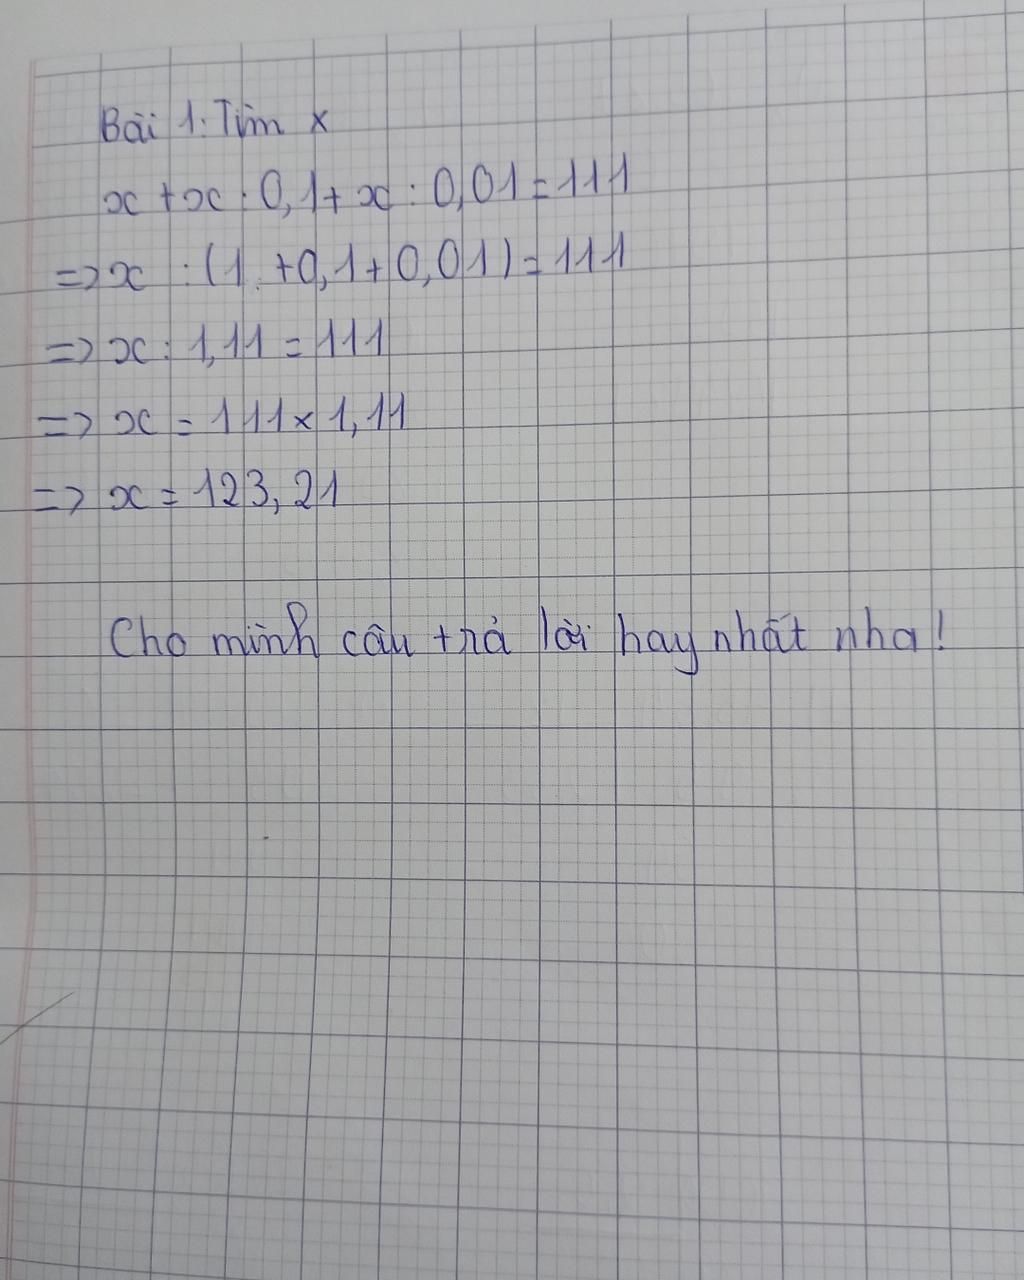 Bài 1: Tìm x
x + x : 0,1 + x : 0,01 = 111
=> x : (1 + 0,1 + 0,01) = 111
=> x : 1,11 = 111
=> x = 111 x 1,11
=> x = 123,21
Cho mình câu trả lời hay nhất nha!